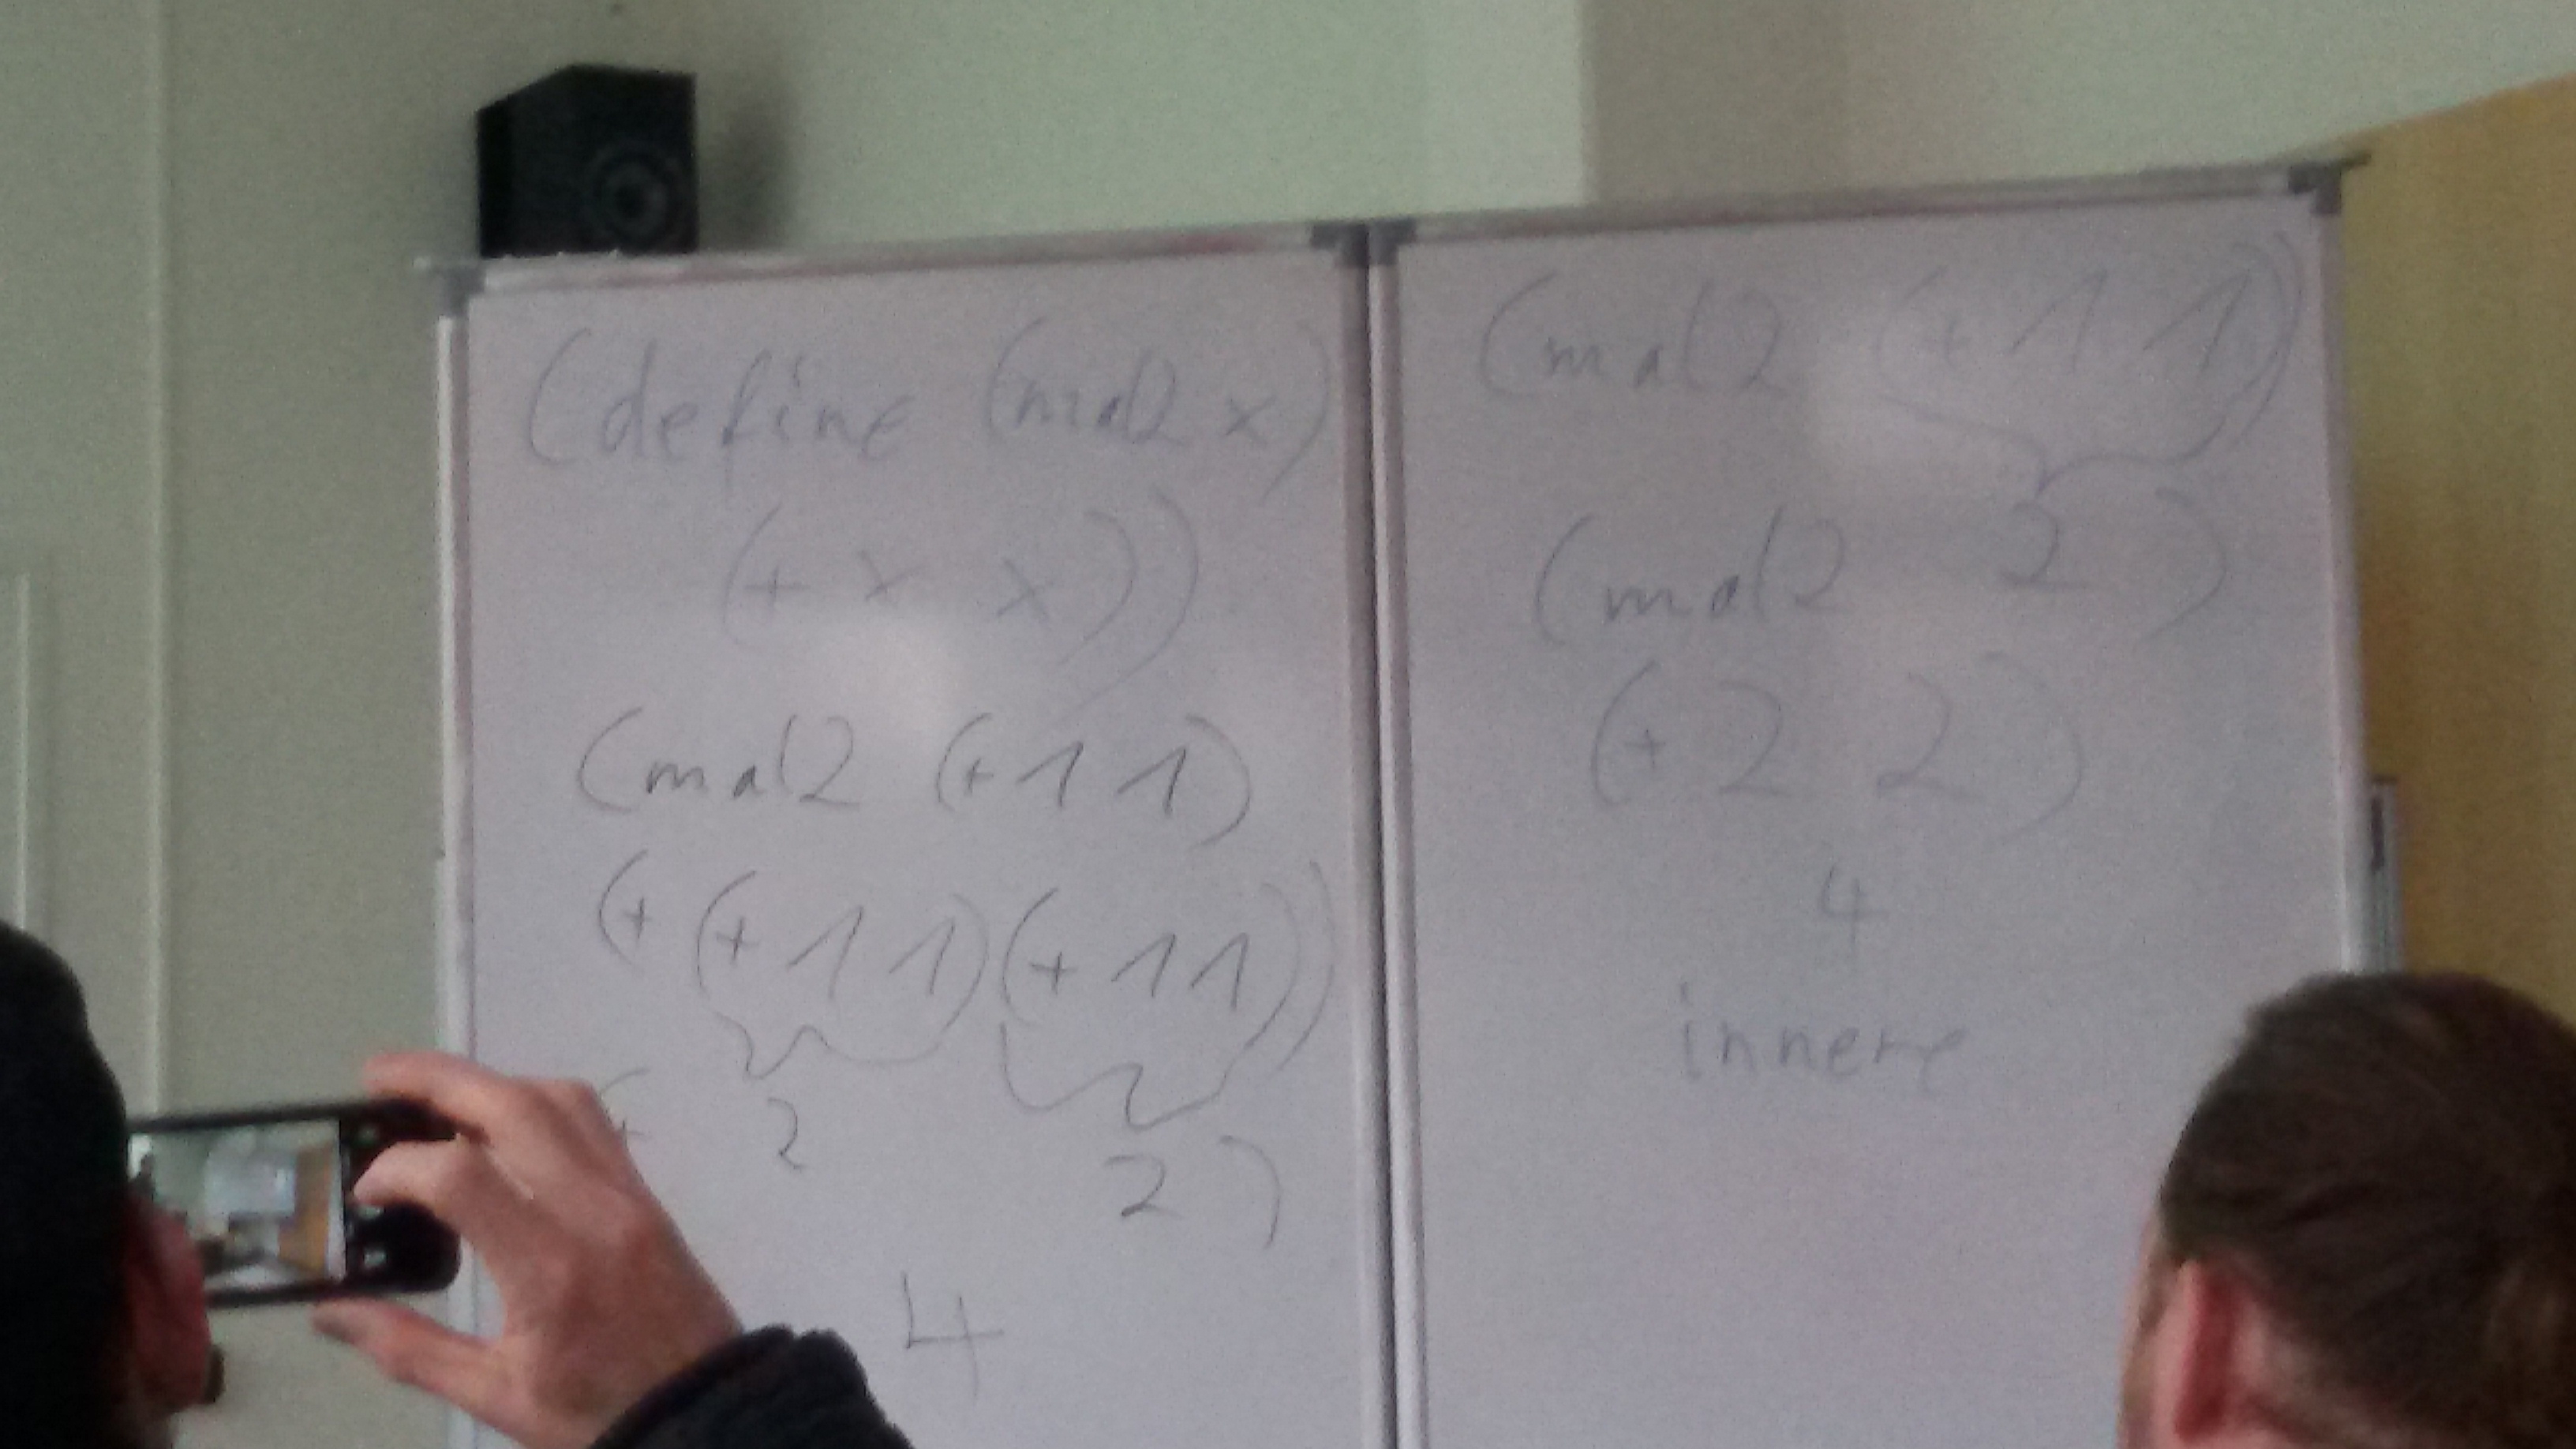 (define (mal2 x)
(+ x x))
(mal2 (+ 1 1)
(+ (+ 1 1) (+ 1 1))
(+ 2 2)
4
(mal2 (+ 1 1))
(mal2 2)
(+ 2 2)
4
innere